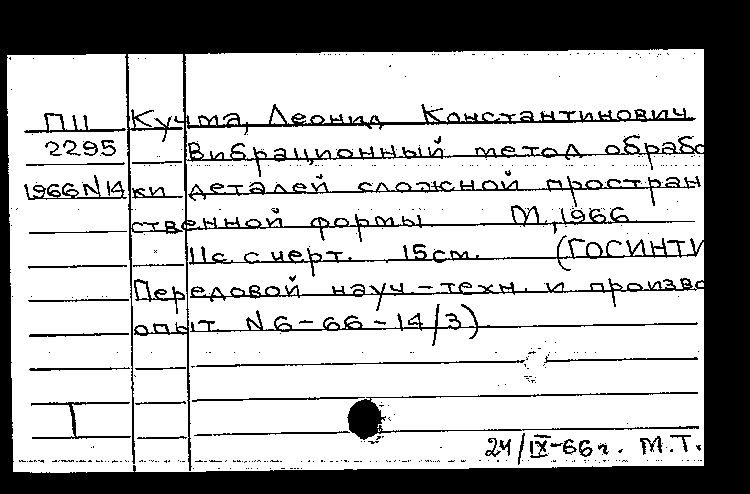 П11 Кучма, Леонид Константинович
2295 Вибрационный метод обрабо
1966 N14 ки деталей сложной простран
ственной формы М., 1966
11с с черт. 15см. (ГОСИНТИ
Передовой науч-техн. и произво
опыт N6-66-14/3)
24/IX-66г. М.Т.